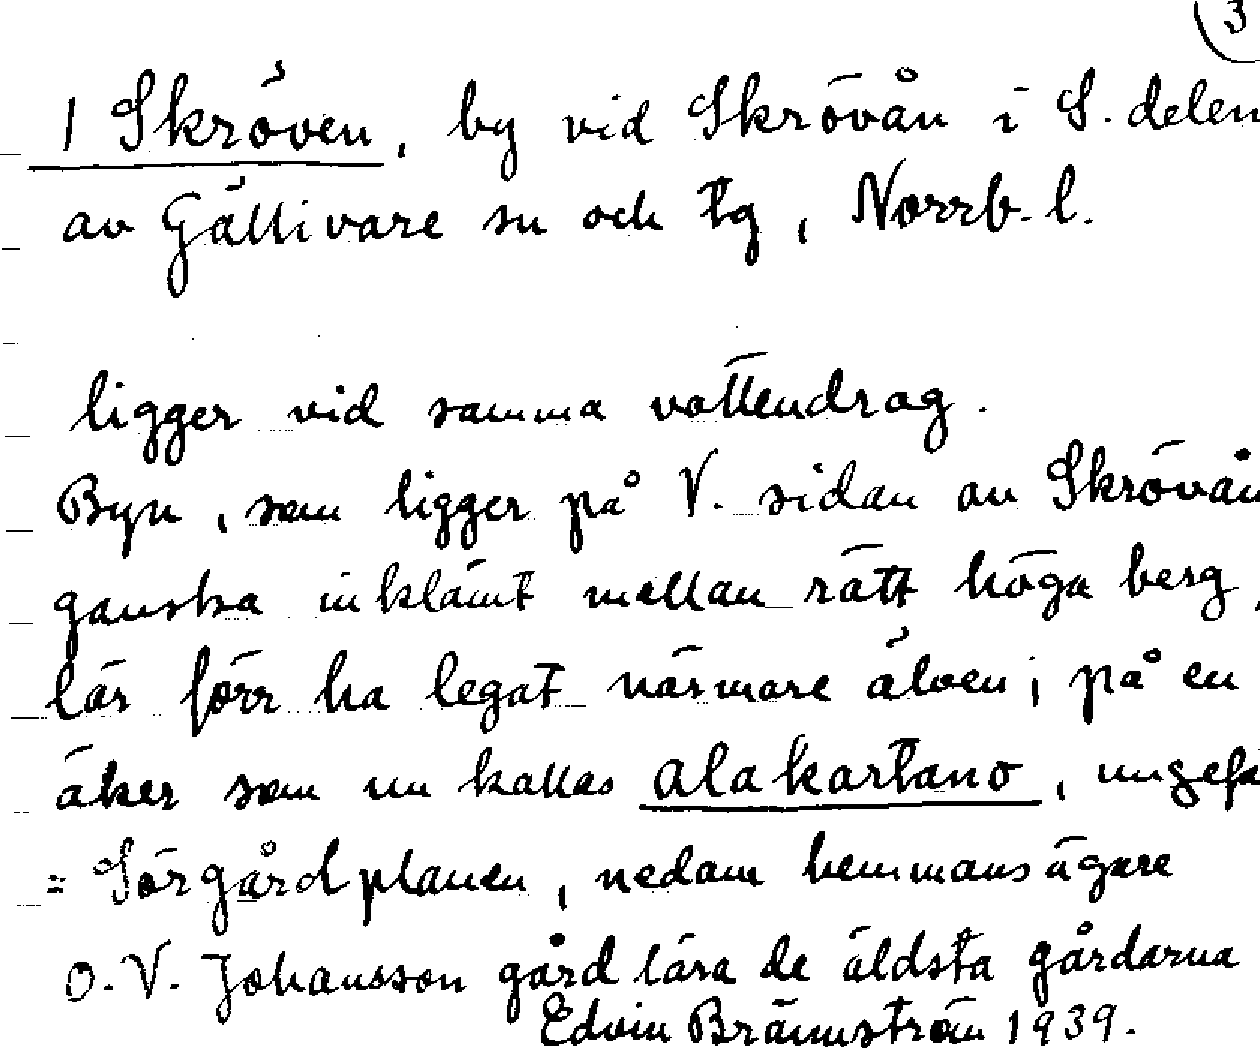 3
1 Skröven, by vid Skrövån i S. delen
av Gällivare sn och tg, Norrb. l.
ligger vid samma vattendrag.
Byn, som ligger på V. sidan av Skrövån
ganska inklämt mellan rätt höga berg,
lär förr ha legat närmare älven; på en
åker som nu kallas alakartano, ungefä
= Sörgårdplanen, nedam hemmansägare
O. V. Johansson gård lära de äldsta gårdarna
Edvin Brännström 1939.